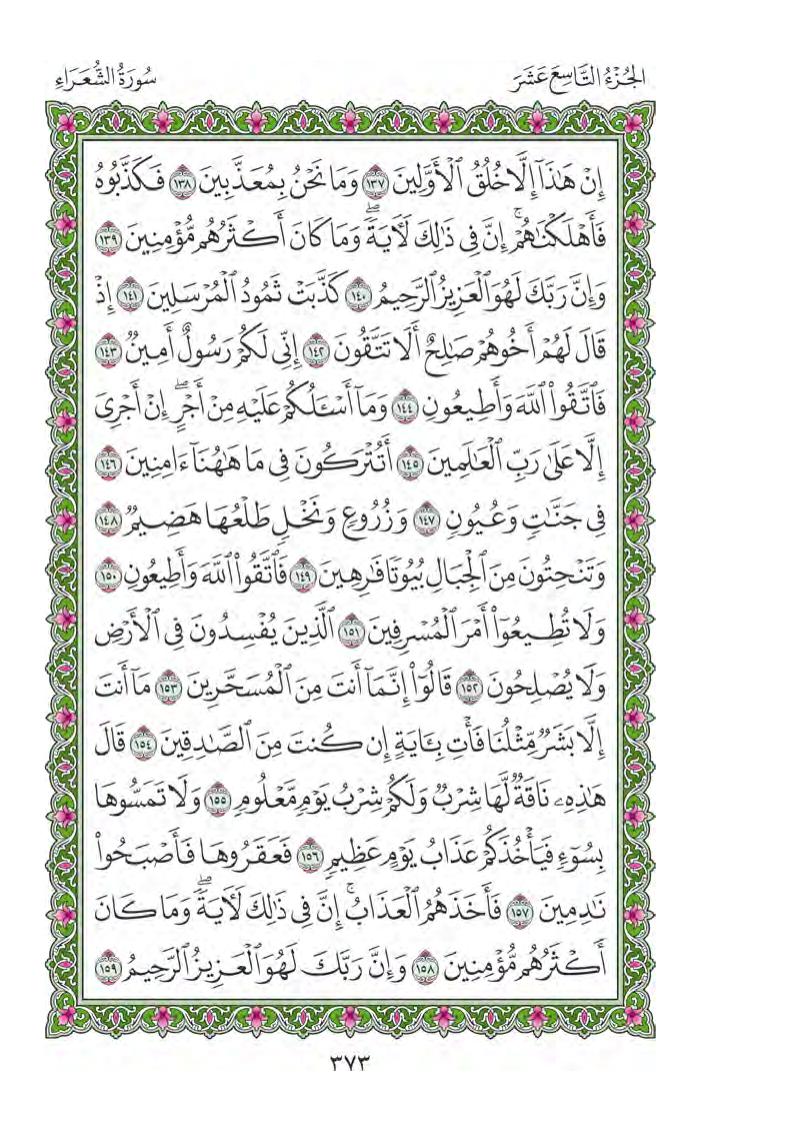 الجُزْءُ التَّاسِعَ عَشَرَ سُورَةُ الشُّعَرَاءِ
إِنْ هَٰذَآ إِلَّا خُلُقُ ٱلْأَوَّلِينَ ١٣٧ وَمَا نَحْنُ بِمُعَذَّبِينَ ١٣٨ فَكَذَّبُوهُ
فَأَهْلَكْنَٰهُمْ ۚ إِنَّ فِى ذَٰلِكَ لَءَايَةً ۖ وَمَا كَانَ أَكْثَرُهُم مُّؤْمِنِينَ ١٣٩
وَإِنَّ رَبَّكَ لَهُوَ ٱلْعَزِيزُ ٱلرَّحِيمُ ١٤٠ كَذَّبَتْ ثَمُودُ ٱلْمُرْسَلِينَ ١٤١ إِذْ
قَالَ لَهُمْ أَخُوهُمْ صَٰلِحٌ أَلَا تَتَّقُونَ ١٤٢ إِنِّى لَكُمْ رَسُولٌ أَمِينٌ ١٤٣
فَٱتَّقُوا۟ ٱللَّهَ وَأَطِيعُونِ ١٤٤ وَمَآ أَسْـَٔلُكُمْ عَلَيْهِ مِنْ أَجْرٍ ۖ إِنْ أَجْرِىَ
إِلَّا عَلَىٰ رَبِّ ٱلْعَٰلَمِينَ ١٤٥ أَتُتْرَكُونَ فِى مَا هَٰهُنَآ ءَامِنِينَ ١٤٦
فِى جَنَّٰتٍ وَعُيُونٍ ١٤٧ وَزُرُوعٍ وَنَخْلٍ طَلْعُهَا هَضِيمٌ ١٤٨
وَتَنْحِتُونَ مِنَ ٱلْجِبَالِ بُيُوتًا فَٰرِهِينَ ١٤٩ فَٱتَّقُوا۟ ٱللَّهَ وَأَطِيعُونِ ١٥٠
وَلَا تُطِيعُوٓا۟ أَمْرَ ٱلْمُسْرِفِينَ ١٥١ ٱلَّذِينَ يُفْسِدُونَ فِى ٱلْأَرْضِ
وَلَا يُصْلِحُونَ ١٥٢ قَالُوٓا۟ إِنَّمَآ أَنتَ مِنَ ٱلْمُسَحَّرِينَ ١٥٣ مَآ أَنتَ
إِلَّا بَشَرٌ مِّثْلُنَا فَأْتِ بِـَٔايَةٍ إِن كُنتَ مِنَ ٱلصَّٰدِقِينَ ١٥٤ قَالَ
هَٰذِهِۦ نَاقَةٌ لَّهَا شِرْبٌ وَلَكُمْ شِرْبُ يَوْمٍ مَّعْلُومٍ ١٥٥ وَلَا تَمَسُّوهَا
بِسُوٓءٍ فَيَأْخُذَكُمْ عَذَابُ يَوْمٍ عَظِيمٍ ١٥٦ فَعَقَرُوهَا فَأَصْبَحُوا۟
نَٰدِمِينَ ١٥٧ فَأَخَذَهُمُ ٱلْعَذَابُ ۚ إِنَّ فِى ذَٰلِكَ لَءَايَةً ۖ وَمَا كَانَ
أَكْثَرُهُم مُّؤْمِنِينَ ١٥٨ وَإِنَّ رَبَّكَ لَهُوَ ٱلْعَزِيزُ ٱلرَّحِيمُ ١٥٩
٣٧٣